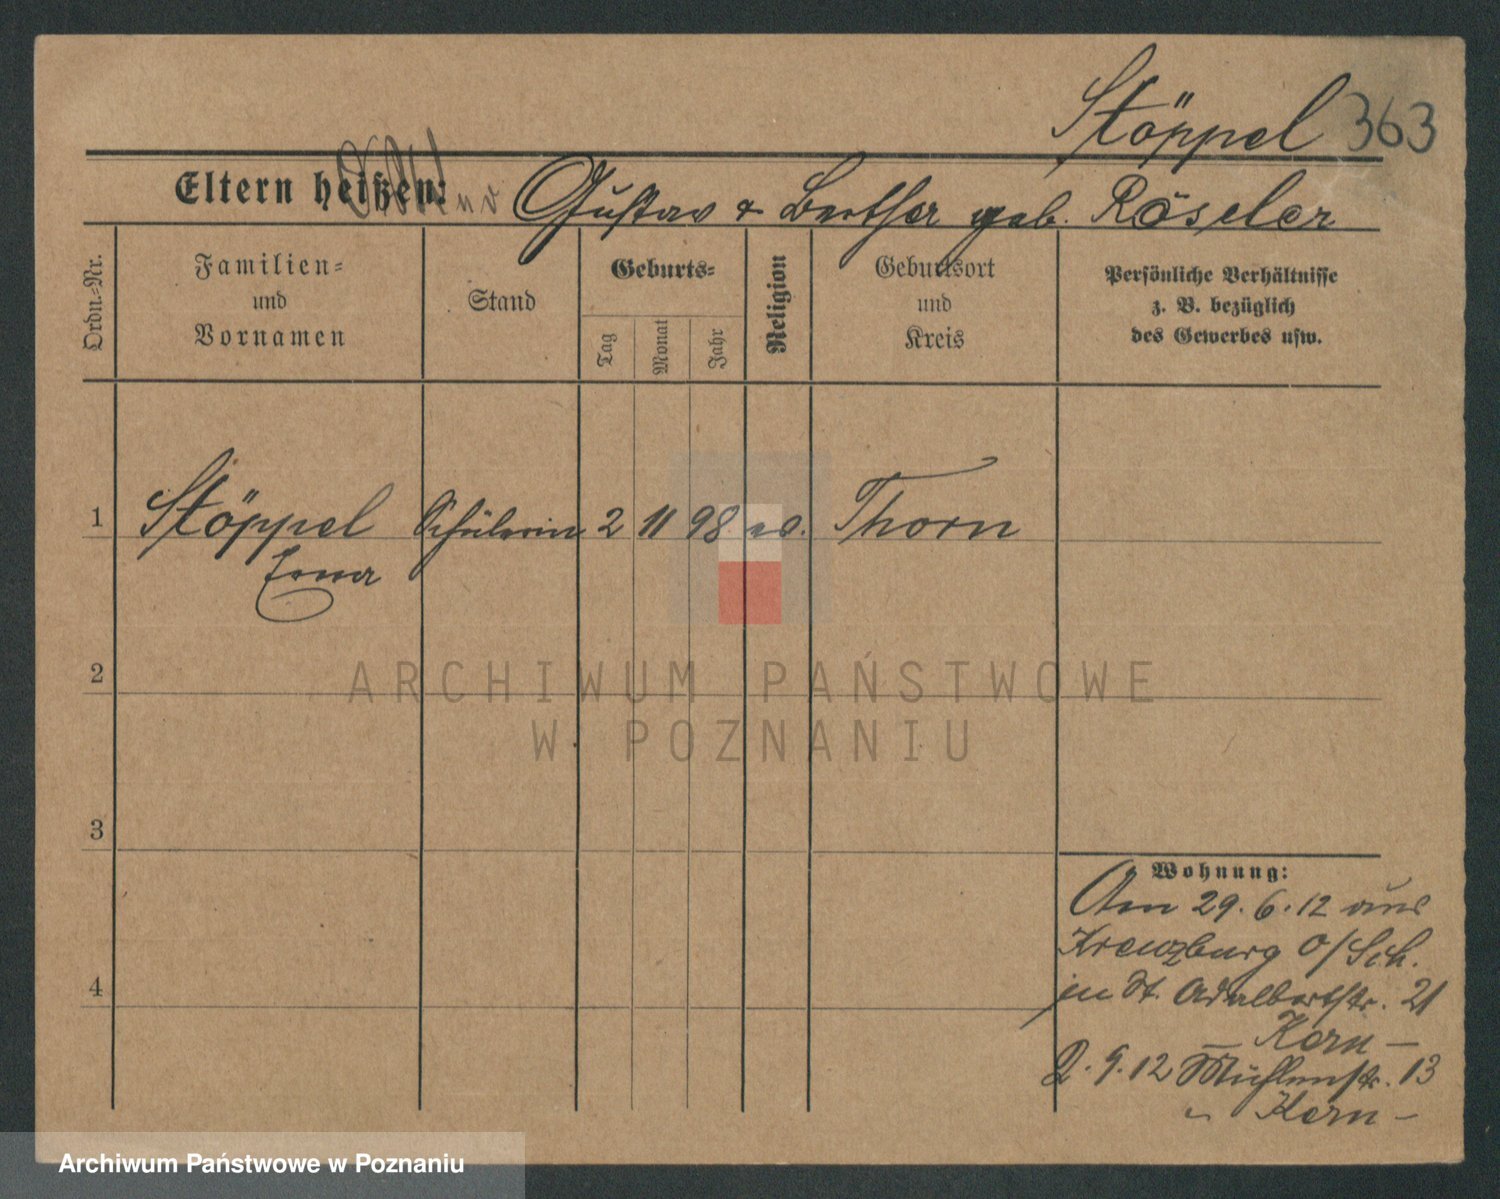 Stöppel 363
Eltern heißen: Gustav & Bertha geb. Röseler
Ordn.=Nr.
Familien=
und
Vornamen
Stand
Geburts=
Tag
Monat
Jahr
Religion
Geburtsort
und
Kreis
Persönliche Verhältnisse
z. B. bezüglich
des Gewerbes usw.
1 Stöppel Schülerin 2 11 98 ev. Thorn
Erna
2
ARCHIWUM PAŃSTWOWE
W POZNANIU
3
Wohnung:
Am 29. 6. 12 aus
Kreuzburg O/Sch.
in St. Adalbertstr. 21
4
– Kern –
2. 9. 12 Mühlenstr. 13
– Kern –
Archiwum Państwowe w Poznaniu